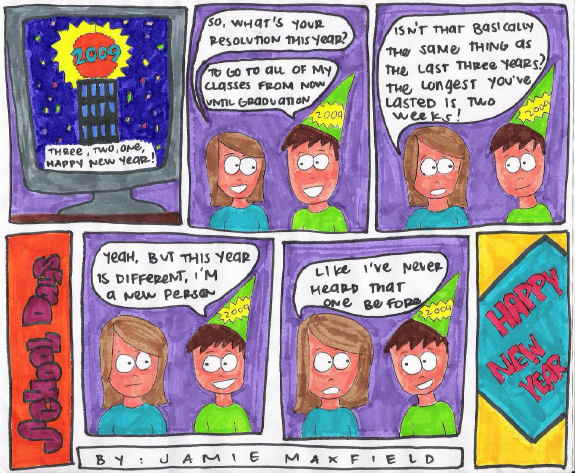 2009
THREE, TWO, ONE,
HAPPY NEW YEAR!
SO, WHAT'S YOUR
RESOLUTION THIS YEAR?
TO GO TO ALL OF MY
CLASSES FROM NOW
UNTIL GRADUATION
2009
ISN'T THAT BASICALLY
THE SAME THING AS
THE LAST THREE YEARS?
THE LONGEST YOU'VE
LASTED IS TWO
WEEKS!
2009
School Days
YEAH, BUT THIS YEAR
IS DIFFERENT, I'M
A NEW PERSON
2009
LIKE I'VE NEVER
HEARD THAT
ONE BEFORE
2009
HAPPY
NEW
YEAR
BY: JAMIE MAXFIELD